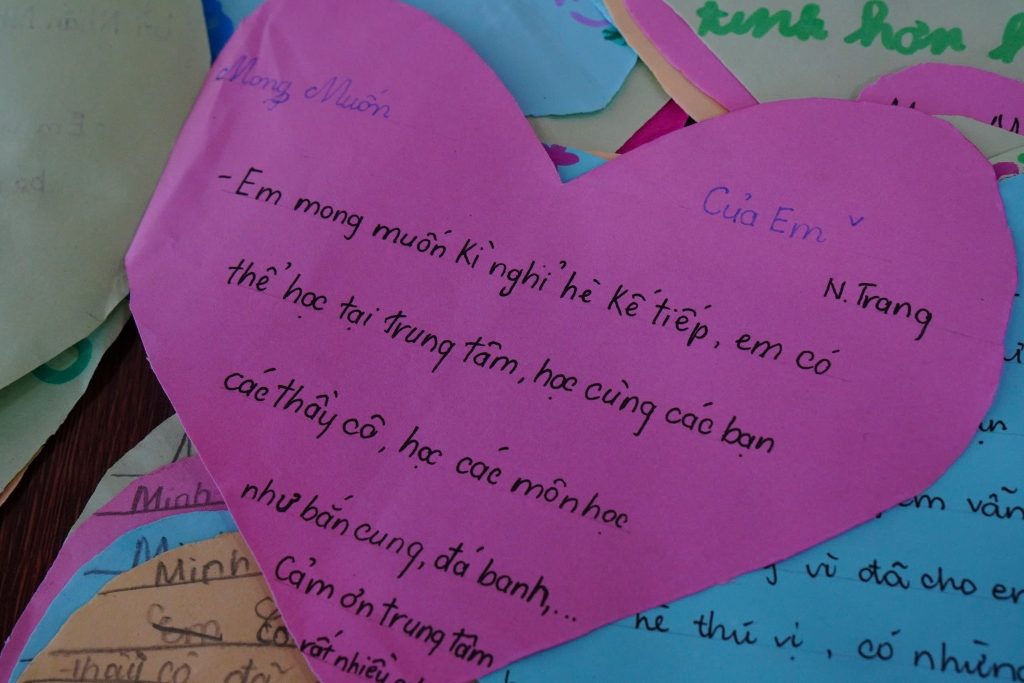 Mong Muốn
Của Em
N. Trang
- Em mong muốn kì nghỉ hè kế tiếp, em có
thể học tại trung tâm, học cùng các bạn
các thầy cô, học các môn học
như bắn cung, đá banh,...
Cảm ơn trung tâm
rất nhiều
tình hơn
Minh
Minh
thầy cô đã
em vẫn
vì đã cho em
hè thú vị, có những